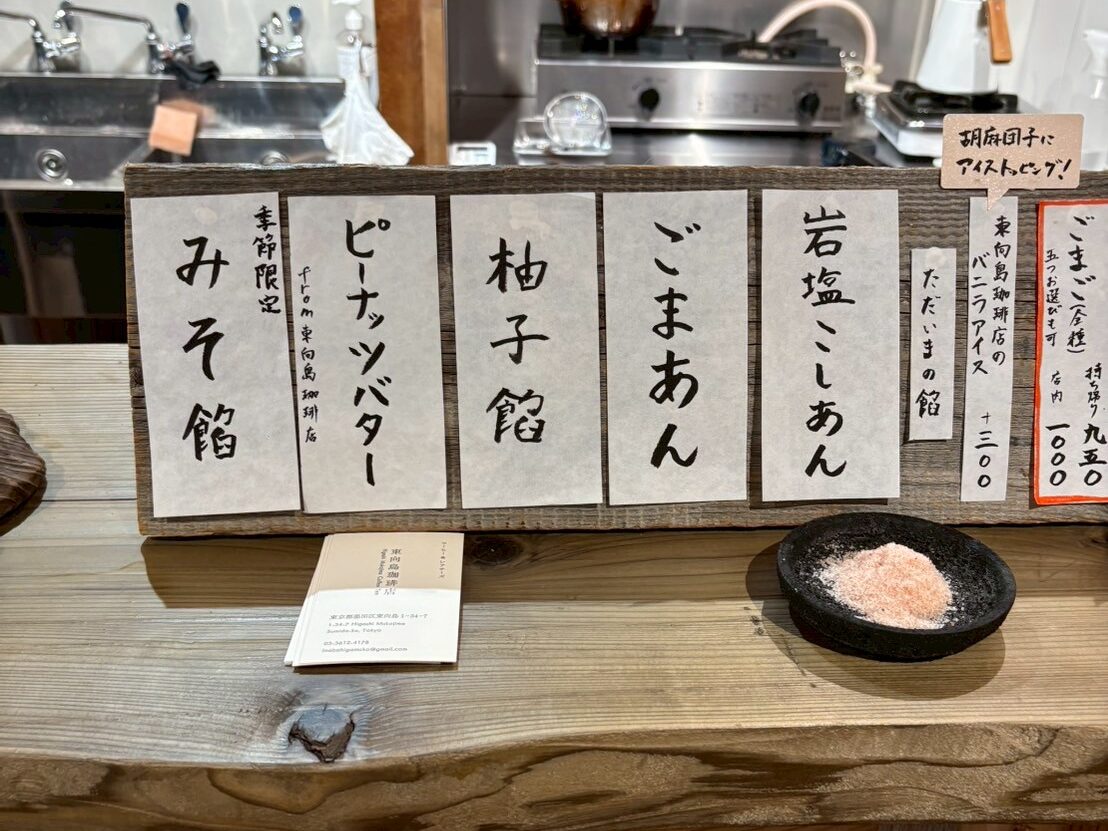 胡麻団子に
アイストッピング!
ごまご(全種)
五つお選びも可
持ち帰り 九五〇
店内 一〇〇〇
東向島珈琲店の
バニラアイス
+三〇〇
ただいまの餡
岩塩こしあん
ごまあん
柚子餡
ピーナッツバター
from東向島珈琲店
季節限定
みそ餡
東向島珈琲店
東京都墨田区東向島1-34-7
1-34-7 Higashi Mukojima
Sumida-ku, Tokyo
03-3612-4178